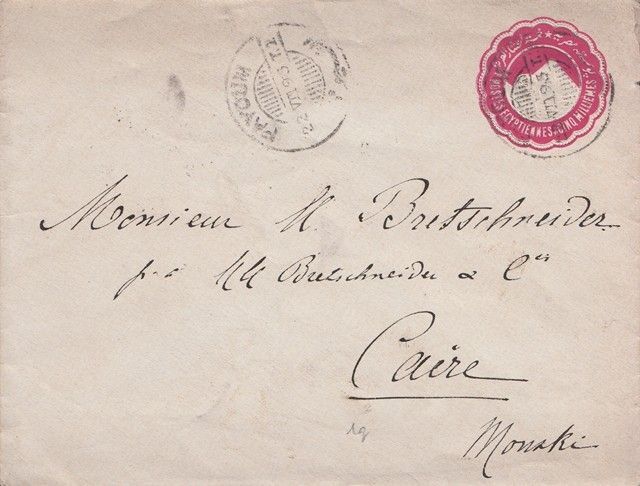 FAYOUM
22 VII 93 T.2
POSTES EGYPTIENNES CINQ MILLIEMES
Monsieur M. Bretschneider
MM Bretschneider & Cie
Caire
Mouski